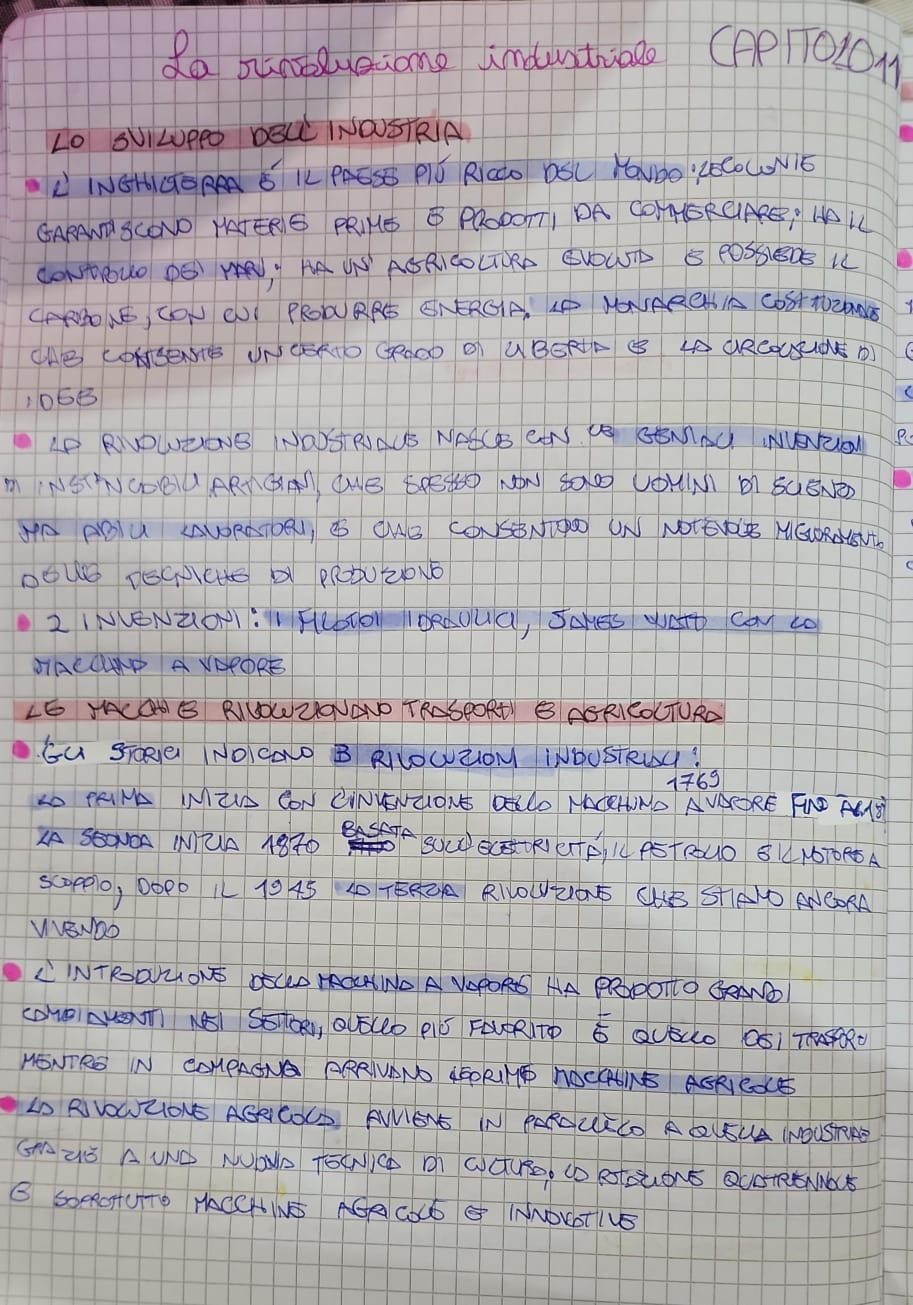 La rivoluzione industriale CAPITOLO 11
LO SVILUPPO DELL'INDUSTRIA
• L'INGHILTERRA È IL PAESE PIÙ RICCO DEL MONDO: LE COLONIE
GARANTISCONO MATERIE PRIME E PRODOTTI DA COMMERCIARE; HA IL
CONTROLLO DEI MARI; HA UN'AGRICOLTURA EVOLUTA E POSSIEDE IL
CARBONE, CON CUI PRODURRE ENERGIA. LA MONARCHIA COSTITUZIONALE
CHE CONSENTE UN CERTO GRADO DI LIBERTÀ E LA CIRCOLAZIONE DI
IDEE
• LA RIVOLUZIONE INDUSTRIALE NASCE CON LE GENIALI INVENZIONI
DI INSTANCABILI ARTIGIANI, CHE SPESSO NON SONO UOMINI DI SCIENZA
MA ABILI LAVORATORI, E CHE CONSENTONO UN NOTEVOLE MIGLIORAMENTO
DELLE TECNICHE DI PRODUZIONE
• 2 INVENZIONI: I FILATOI IDRAULICI, JAMES WATT CON LA
MACCHINA A VAPORE
LE MACCHINE RIVOLUZIONANO TRASPORTI E AGRICOLTURA
• GLI STORICI INDICANO 3 RIVOLUZIONI INDUSTRIALI:
LA PRIMA INIZIA CON L'INVENZIONE DELLA MACCHINA A VAPORE 1769 FINO
LA SECONDA INIZIA 1870 BASATA SULL'ELETTRICITÀ, IL PETROLIO E IL MOTORE A
SCOPPIO, DOPO IL 1945 LA TERZA RIVOLUZIONE CHE STIAMO ANCORA
VIVENDO
• L'INTRODUZIONE DELLA MACCHINA A VAPORE HA PRODOTTO GRANDI
CAMBIAMENTI NEI SETTORI, QUELLO PIÙ FAVORITO È QUELLO DEI TRASPORTI
MENTRE IN CAMPAGNA ARRIVANO LE PRIME MACCHINE AGRICOLE
• LA RIVOLUZIONE AGRICOLA AVVIENE IN PARALLELO A QUELLA INDUSTRIALE
GRAZIE A UNA NUOVA TECNICA DI COLTURA, LA ROTAZIONE QUADRIENNALE
E SOPRATTUTTO MACCHINE AGRICOLE E INNOVATIVE